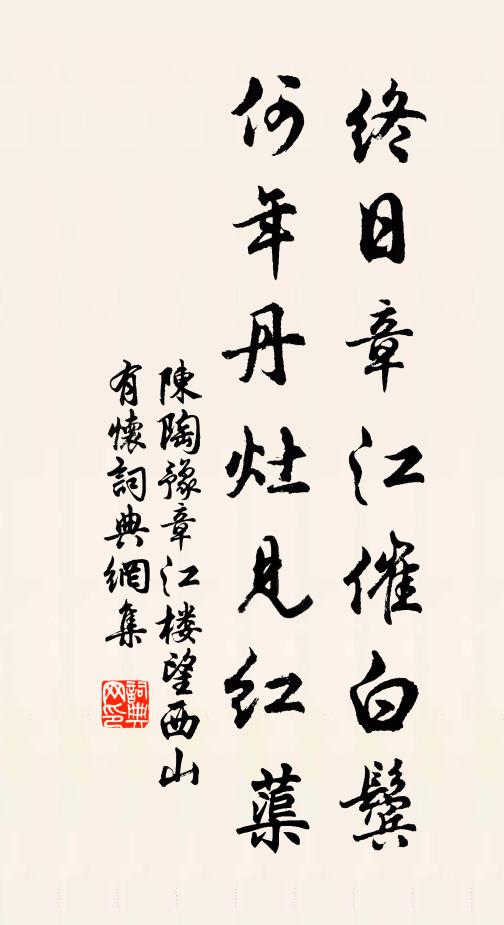 終日章江催白鬢
何年丹灶見紅蕖
陳陶豫章江楼望西山
有懷詞典網集
詞典
网印